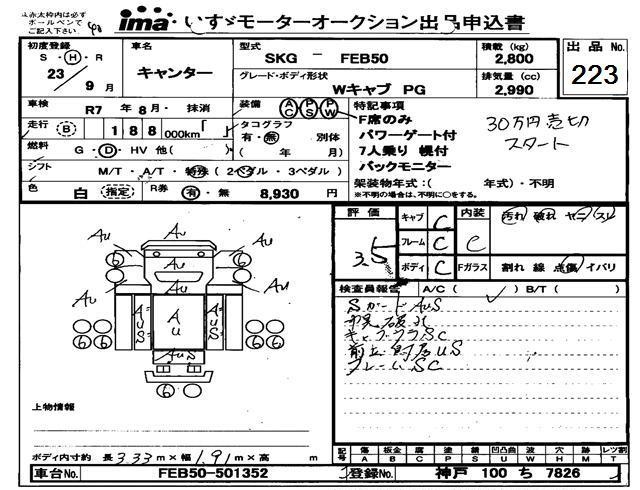 ima いすゞモーターオークション出品申込書
※赤太枠内は必ず
ボールペンで
ご記入下さい。
初度登録 S・H・R 23/9月
車名 キャンター
型式 SKG － FEB50
積載 (kg) 2,800
出品 No. 223
グレード・ボディ形状 Wキャブ PG
排気量 (cc) 2,990
車検 R7 年 8月・ 抹消
装備 AC PS PW
特記事項
F席のみ
パワーゲート付
7人乗り 幌付
バックモニター
30万円売切
スタート
走行 B 188 000km「 」
タコグラフ 有・無 別体 ( 年 月)
燃料 G・D・HV 他( )
シフト M/T・A/T・特殊 (2ペダル・3ペダル)
架装物年式：( 年式)・不明
※不明の場合は、不明に○をする。
色 白 指定 R券 有・無 8,930 円
評価 3.5
キャブ C
フレーム C
ボディ C
内装 C
汚れ 破れ ヤニ スレ
Fガラス 割れ 線 点傷 イバリ
検査員報告 A/C ( ) B/T ( )
Sガード AuS
キャブウラSC
フレームSC
Au Au Au
Au Au
A
U
AUS AUS
AuS
6 6
6 6 6 6
6
上物情報
ボディ内寸約 長 3.33 m×幅 1.91 m×高 m
記号 傷 A 板金 B 腐 C 塗 P 錆 S 凹凸曲 U 波 W 穴 H 跡 M レツ割 T
車台No. FEB50-501352 登録No. 神戸 100 ち 7826